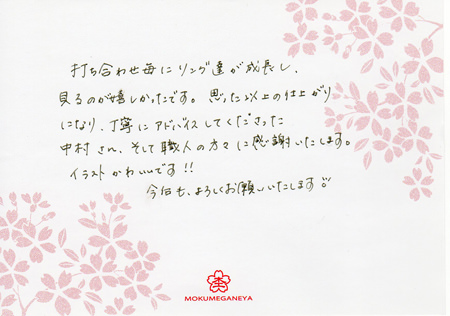 打ち合わせ毎にリング達が成長し、
見るのが嬉しかったです。思った以上の仕上がり
になり、丁寧にアドバイスしてくださった
中村さん、そして職人の方々に感謝いたします。
イラストかわいいです!!
今後も、よろしくお願いいたします
MOKUMEGANEYA